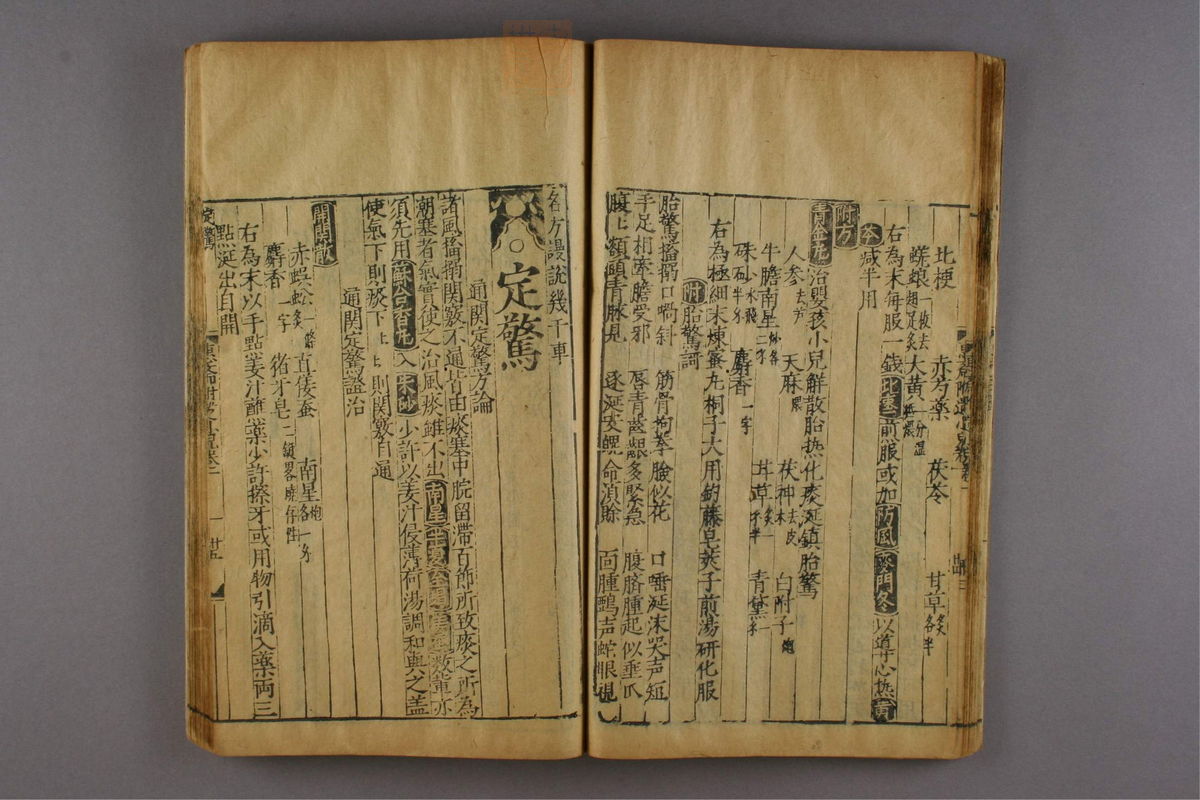 北梗 赤芍藥 茯苓 甘草炙各半
蜣蜋一枚去翅足炙 大黃一分濕紙煨
右為末每服一錢此棗煎服或加防風麥門冬以導心熱黃
芩減半用
附方
青金丸治嬰孩小兒解散胎熱化痰涎鎮胎驚
人參去芦 天麻煨 茯神去皮木 白附子炮
牛膽南星二刄 茸草炙一刄半 青黛一刄
硃砂水飛半刄 麝香一字
右為極細末煉蜜丸桐子大用鈎藤皂莢子煎湯研化服
附胎驚訶
胎驚搐搦口喎斜 筋骨拘拳臉似花 口噇涎沫哭声短
手足相牽膽受邪 唇青齒齦多緊急 腹脐腫起似垂爪
腹上額顱青脉見 逐涎安魄命須賒 面腫鵶声蛇眼視
各方謾說幾千車
定驚
通関定驚方論
諸風搐搦関竅不通皆由痰塞中脘留滯百節所致痰之所為
潮塞者氣實使之治風痰雖不出南星半夏全蝎 数葷亦
須先用蘇合香丸入朱砂少許以姜汁侵薄荷湯調和與之盖
使氣下則痰下痰下則関竅自通
通関定驚證治
開関散
赤蜈蚣一條炙 直僵蚕 南星炮各一刄
麝香一字 猪牙皂二鋌畧燒存性
右為末以手點姜汁蘸藥少許擦牙或用物引滴入藥両三
點涎出自開
定驚
卷二
廿五